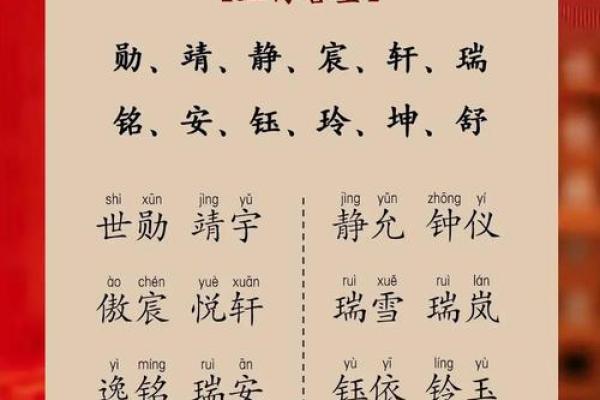 勋、靖、静、宸、轩、瑞
铭、安、钰、玲、坤、舒
shì xūn jìng yǔ jìng yǔn zhōng yí
世勋 靖宇 静允 钟仪
ào chén yuè xuān ruì xuě ruì lán
傲宸 悦轩 瑞雪 瑞岚
yì míng ruì ān yù yī líng yù
逸铭 瑞安 钰依 铃玉